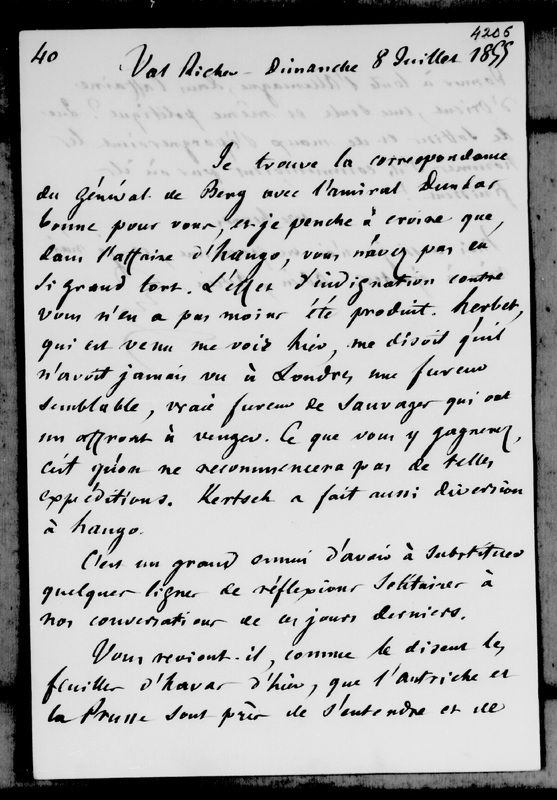 4206
40
Val Richer - Dimanche 8 Juillet 1855
Je trouve la correspondance
du général de Berg avec l'amiral Dundas
bonne pour vous, et je penche à croire que,
dans l'affaire d'hango, vous n'avez pas eu
si grand tort. L'effet d'indignation contre
vous n'en a pas moins été produit. herbet,
qui est venu me voir hier, me disoit qu'il
n'avoit jamais vu à Londres une fureur
semblable, vraie fureur de sauvages qui ont
un affront à venger. Ce que vous y gagnerez,
c'est qu'on ne recommencera pas de telles
expéditions. Kertsch a fait aussi diversion
à hango.
C'est un grand ennui d'avoir à substituer
quelques lignes de réflexions solitaires à
nos conversations de ces jours derniers.
Vous revient-il, comme le disent les
feuilles d'havas d'hier, que l'Autriche et
la Prusse sont près de s'entendre et de